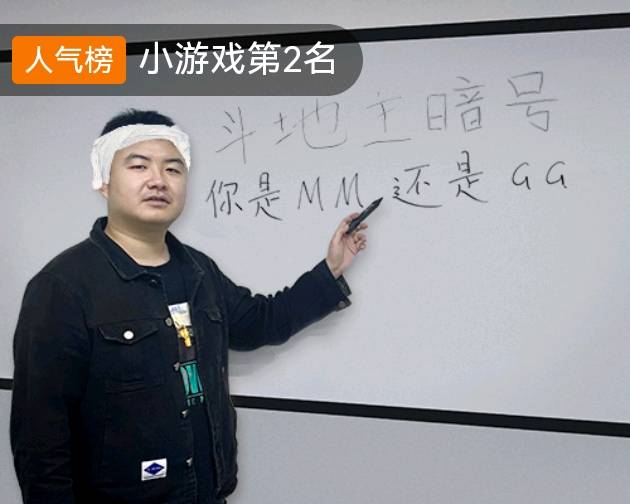 人气榜 小游戏第2名
斗地主暗号
你是MM还是GG